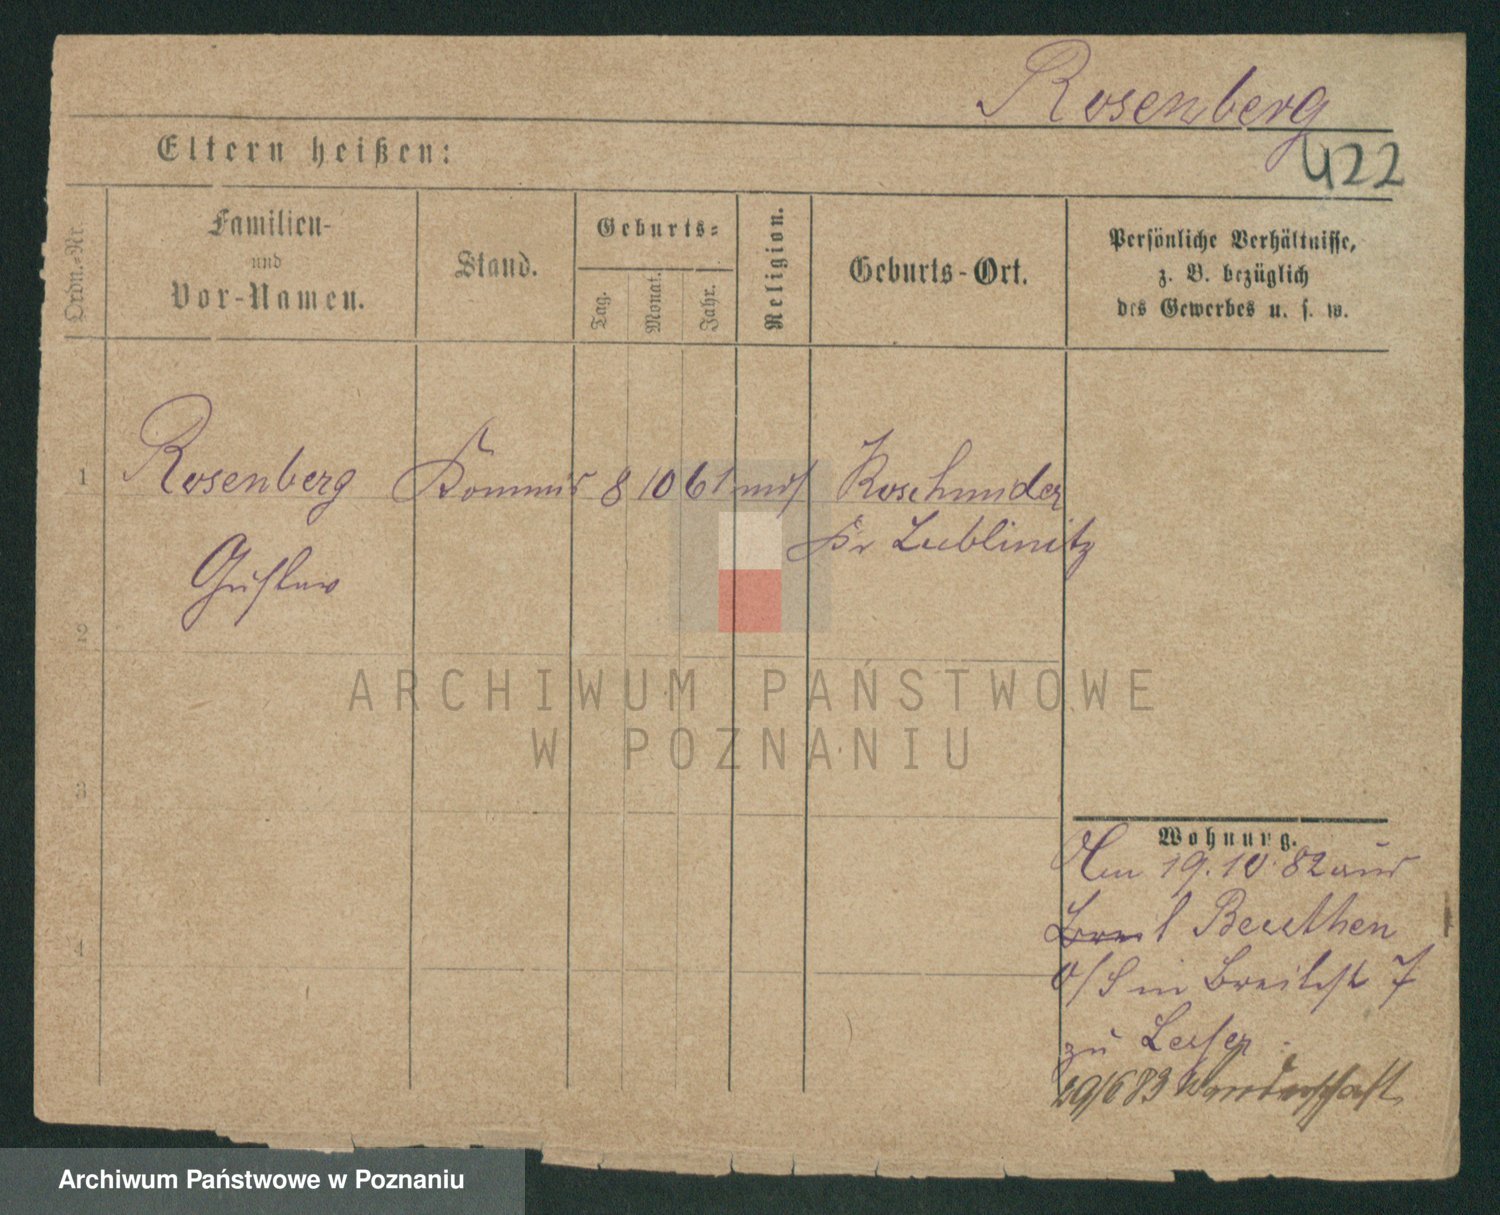 Rosenberg
422
Eltern heißen:
Ordn.-Nr.
Familien-
und
Vor-Namen.
Stand.
Geburts=
Tag.
Monat.
Jahr.
Religion.
Geburts-Ort.
Persönliche Verhältnisse,
z. B. bezüglich
des Gewerbes u. s. w.
1 Rosenberg Kommis 8 10 61 mos Koschmider
Kr Lublinitz
Gustav
2
3
4
Wohnung.
Am 19.10.82 aus
Beuthen
O/S in Breitestr 7
zu Leiser
29/6 83 Wanderschaft
ARCHIWUM PAŃSTWOWE
W POZNANIU
Archiwum Państwowe w Poznaniu